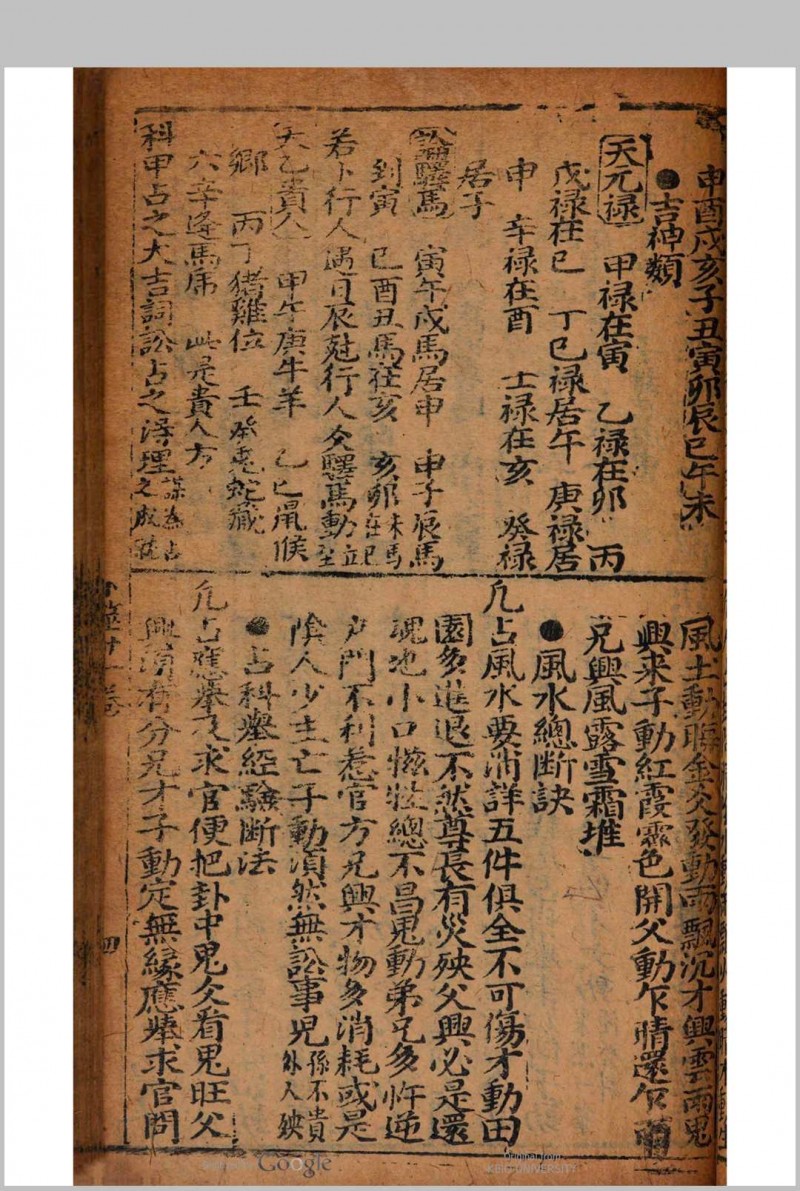 申酉戌亥子丑寅卯辰巳午未
●吉神類
天元禄 甲禄在寅 乙禄在卯 丙
戊禄在巳 丁巳禄居午 庚禄居
申 辛禄在酉 士禄在亥 癸禄
居子
驛馬 寅午戌馬居申 申子辰馬
到寅 巳酉丑馬在亥 亥卯未馬在巳
若卜行人遇日辰尅行人爻驛馬動立至
天乙貴人 甲戊庚牛羊 乙巳鼠猴
鄉 丙丁猪雞位 壬癸兎蛇藏
六辛逢馬虎 此是貴人方
科甲占之大吉詞訟占之得理謀為占之成就
風土動
金爻發動雨飄沉才興雲雨鬼
興来子動紅霞霽色開父動乍晴還乍雨
兄興風露雪霜堆
●風水總斷訣
凢占風水要消詳五件俱全不可傷才動田
園多進退不然尊長有災殃父興必是還
魂地小口犠牲總不昌鬼動弟兄多忤逆
户門不利惹官方兄興才物多消耗或是
陰人少主亡子動湏然無訟事兒孫不貴外人殃
●占科舉經驗斷法
凢占應舉及求官便把卦中鬼爻看鬼旺父
興湏有分兄才子動定無緣應舉求官問
四
Google
Original from